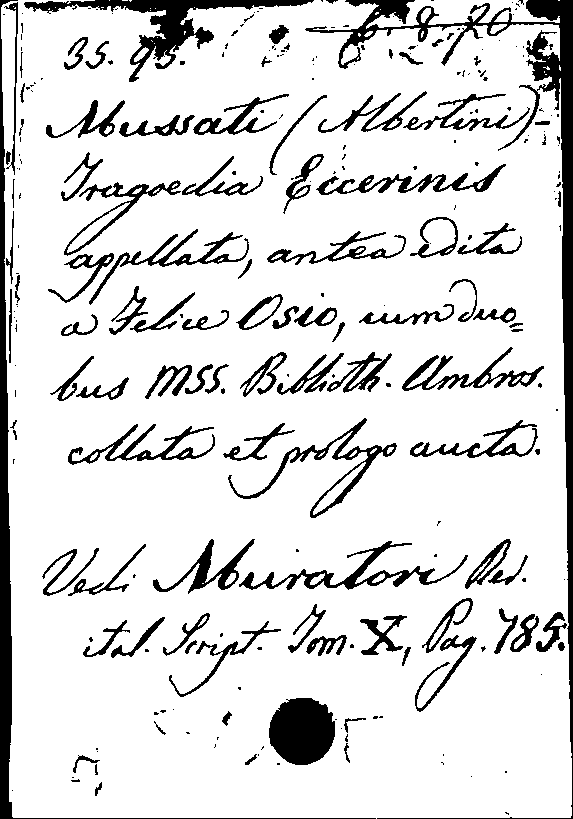 6. 8. 20
35. 95.
Mussati (Albertini) -
Tragoedia Eccerinis
appellata, antea edita
a Felice Osio, cum duo=
bus MSS. Biblioth. Ambros.
collata et prologo aucta.
Vedi Muratori Rer.
ital. Script. Tom. X, Pag. 785.